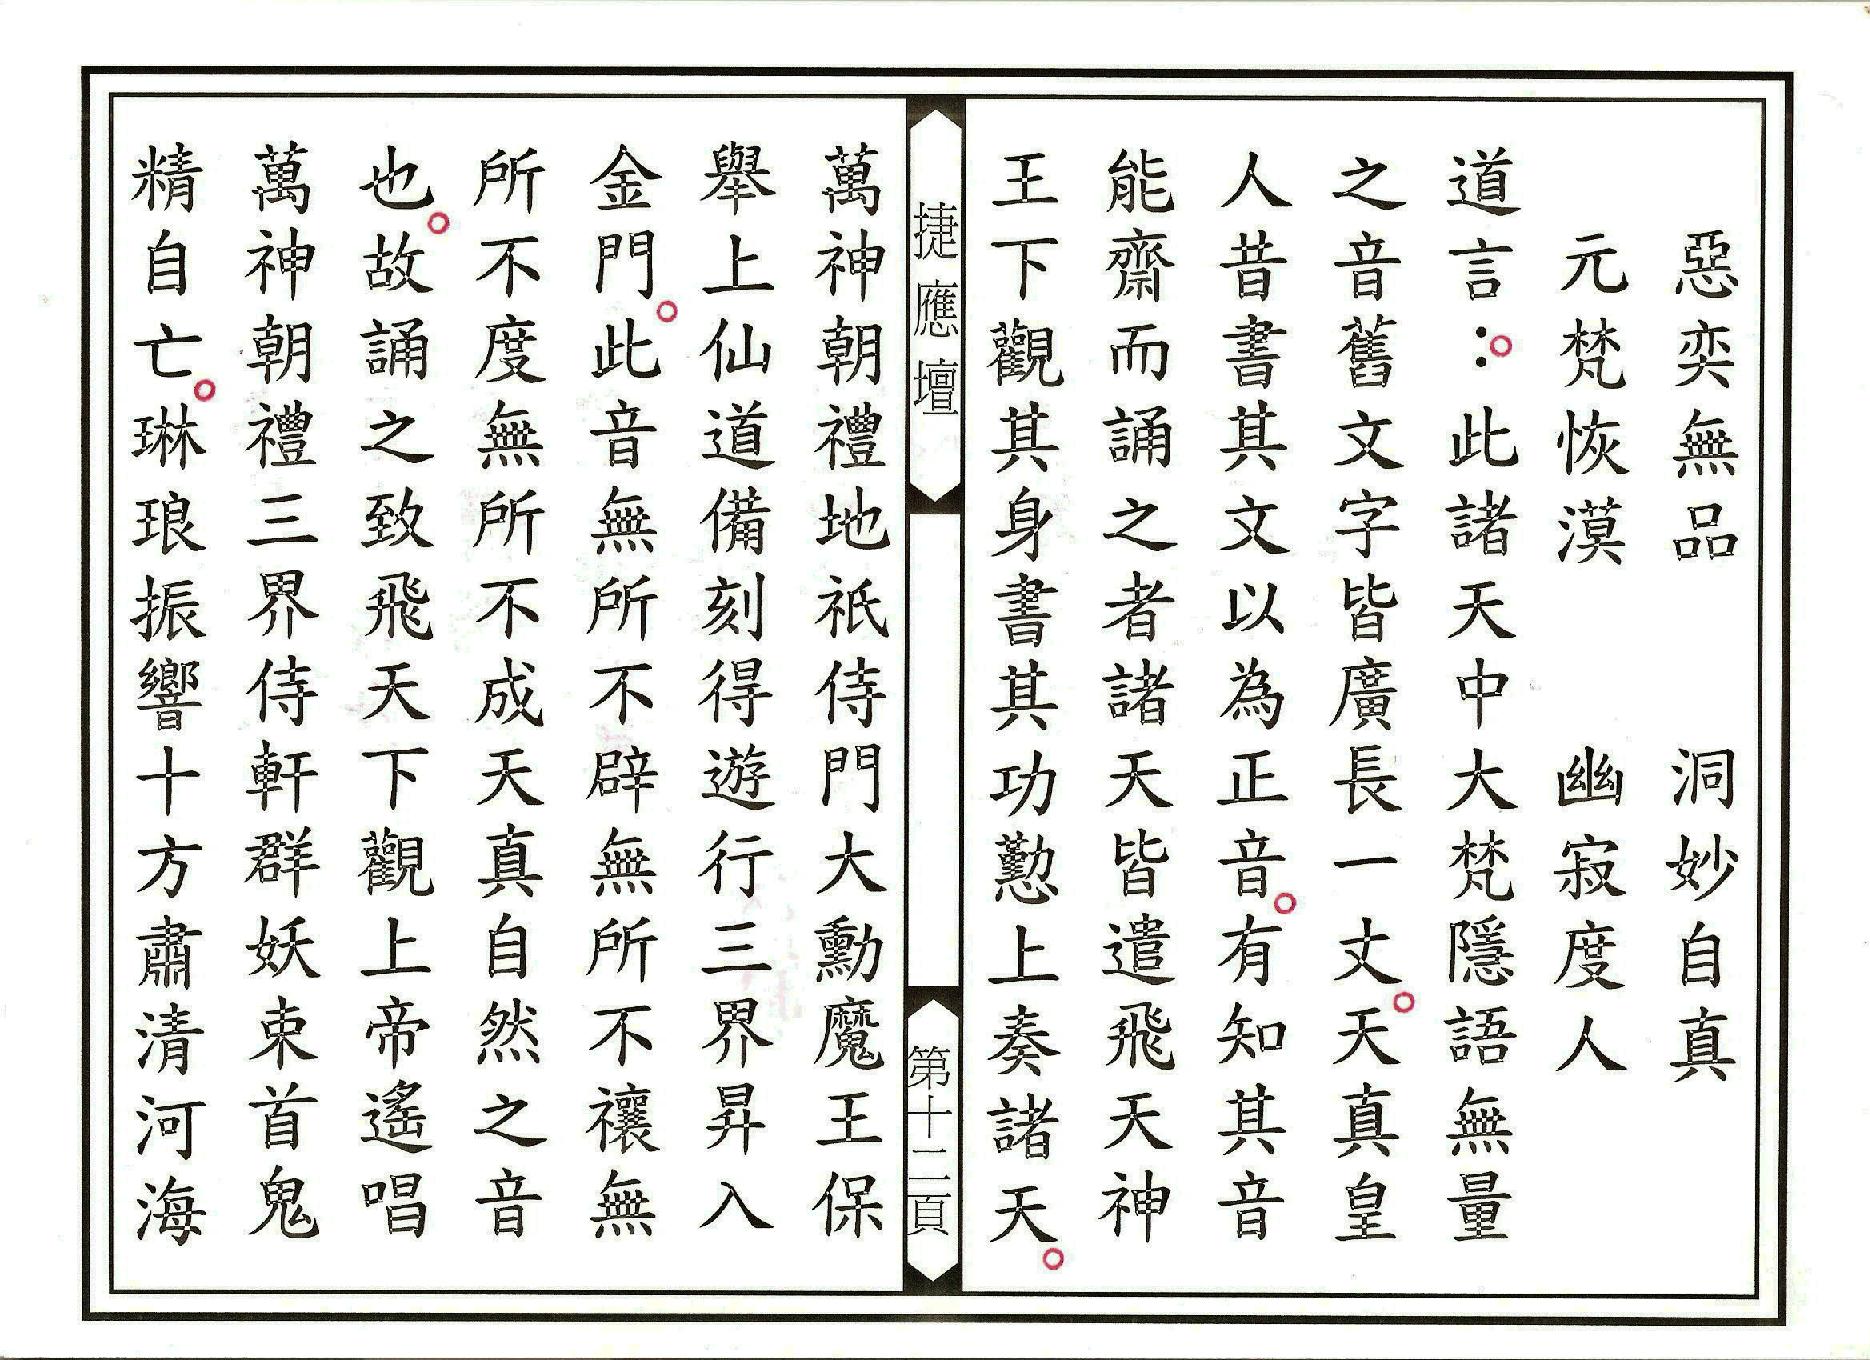 惡奕無品　洞妙自真
元梵恢漠　幽寂度人
道言：此諸天中大梵隱語無量
之音舊文字皆廣長一丈。天真皇
人昔書其文以為正音。有知其音
能齋而誦之者諸天皆遣飛天神
王下觀其身書其功懃上奏諸天。
捷應壇
第十二頁
萬神朝禮地祇侍門大勳魔王保
舉上仙道備刻得遊行三界昇入
金門。此音無所不辟無所不禳無
所不度無所不成天真自然之音
也。故誦之致飛天下觀上帝遙唱
萬神朝禮三界侍軒群妖束首鬼
精自亡。琳琅振響十方肅清河海